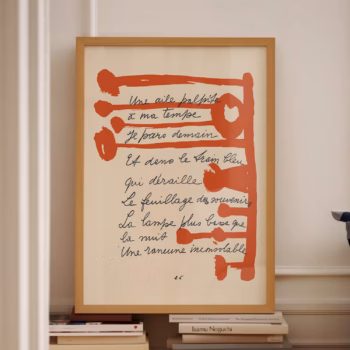 Une aile palpite
à ma tempe
Je pars demain
Et dans le train bleu
qui déraille
Le feuillage des souvenirs
La lampe plus basse que
la nuit
Une rancune inconsolable
Isamu Noguchi